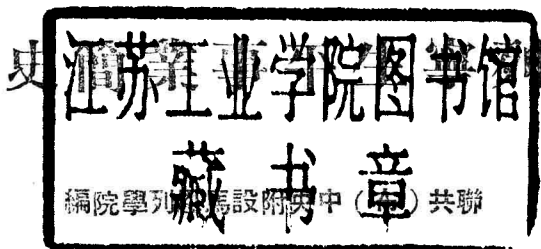 江苏工业学院图书馆
藏书章
事業簡史
聯共（布）中央附設馬列學院編